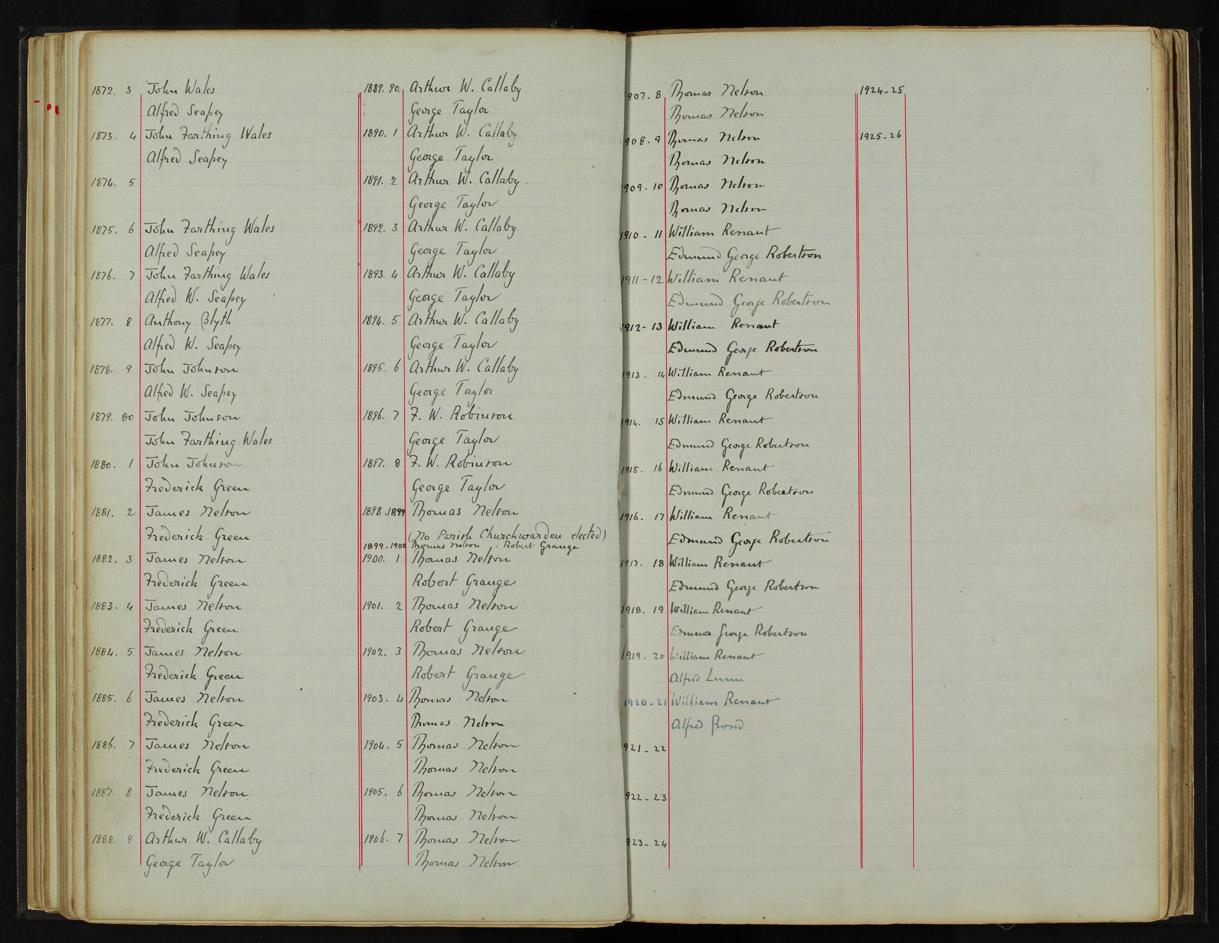 1872. 3 John Wales
Alfred Seapey
1873. 4 John Farthing Wales
Alfred Seapey
1874. 5
1875. 6 John Farthing Wales
Alfred Seapey
1876. 7 John Farthing Wales
Alfred W. Seapey
1877. 8 Anthony Blyth
Alfred W. Seapey
1878. 9 John Johnson
Alfred W. Seapey
1879. 80 John Johnson
John Farthing Wales
1880. 1 John Johnson
Frederick Green
1881. 2 James Nelson
Frederick Green
1882. 3 James Nelson
Frederick Green
1883. 4 James Nelson
Frederick Green
1884. 5 James Nelson
Frederick Green
1885. 6 James Nelson
Frederick Green
1886. 7 James Nelson
Frederick Green
1887. 8 James Nelson
Frederick Green
1888. 9 Arthur W. Callaby
George Taylor
1889. 90 Arthur W. Callaby
George Taylor
1890. 1 Arthur W. Callaby
George Taylor
1891. 2 Arthur W. Callaby.
George Taylor
1892. 3 Arthur W. Callaby
George Taylor
1893. 4 Arthur W. Callaby
George Taylor
1894. 5 Arthur W. Callaby
George Taylor
1895. 6 Arthur W. Callaby
George Taylor
1896. 7 F. W. Robinson
George Taylor
1897. 8 F. W. Robinson
George Taylor
1898. 1899 Thomas Nelson
(No Parish Churchwarden elected)
1899. 1900 Thomas Nelson. Robert Grange
1900. 1 Thomas Nelson
Robert Grange
1901. 2 Thomas Nelson
Robert Grange
1902. 3 Thomas Nelson
Robert Grange
1903. 4 Thomas Nelson
Thomas Nelson
1904. 5 Thomas Nelson
Thomas Nelson
1905. 6 Thomas Nelson
Thomas Nelson
1906. 7 Thomas Nelson
Thomas Nelson
907. 8 Thomas Nelson
Thomas Nelson
908. 9 Thomas Nelson
Thomas Nelson
909. 10 Thomas Nelson
Thomas Nelson
1910 - 11 William Rennaut
Edmund George Robertson
1911 - 12 William Rennaut
Edmund George Robertson
1912- 13 William Rennaut
Edmund George Robertson
1913. 14 William Rennaut
Edmund George Robertson
1914. 15 William Rennaut
Edmund George Robertson
1915. 16 William Rennaut
Edmund George Robertson
1916. 17 William Rennaut
Edmund George Robertson
1917. 18 William Rennaut
Edmund George Robertson
1918. 19 William Rennaut
George Robertson
1919. 20 William Rennaut
Alfred Lunn
1920-21 William Rennaut
Alfred Bond
921-22
922-23
923-24
1924-25
1925-26